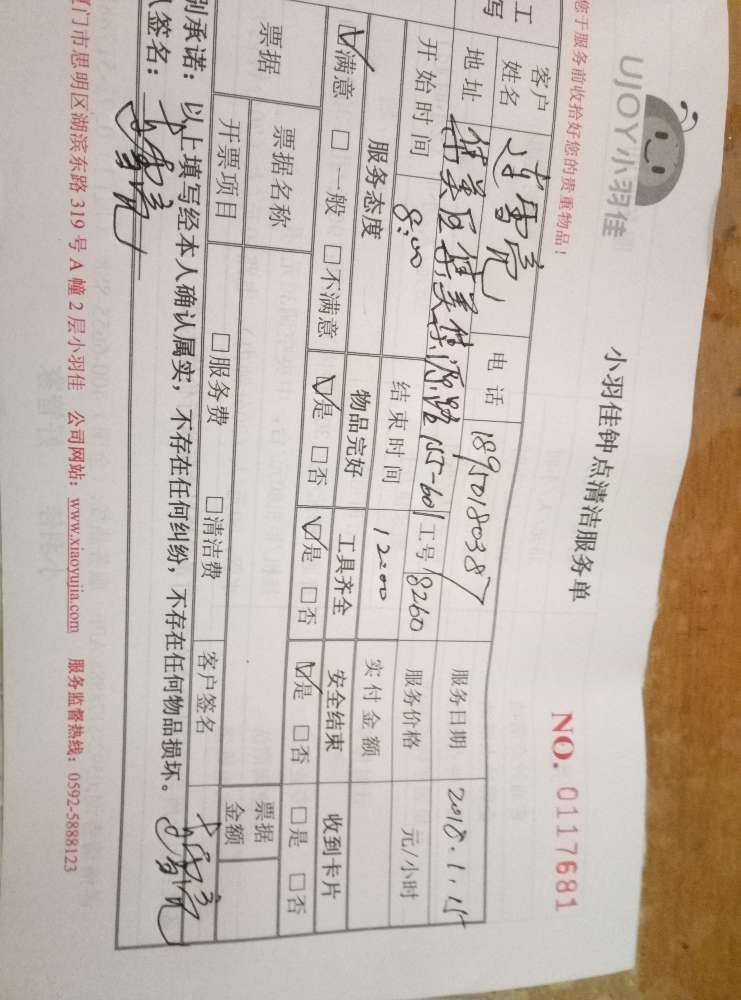 UJOY小羽佳
小羽佳钟点清洁服务单
NO. 0117681
您于服务前收拾好您的贵重物品！
工
写
客户姓名 电话 18950180387 服务日期 2018.1.15
地址 集美区集美 源路155-601 工号 18260 服务价格 元/小时
开始时间 8:00 结束时间 12:00 实付金额
服务态度 物品完好 工具齐全 安全结束 收到卡片
☑满意 □一般 □不满意 ☑是 □否 ☑是 □否 ☑是 □否 □是 □否
票据 票据名称 □服务费 □清洁费 客户签名 票据金额
开票项目
别承诺：以上填写经本人确认属实，不存在任何纠纷，不存在任何物品损坏。
签名：
门市思明区湖滨东路 319 号 A 幢 2 层小羽佳 公司网站：www.xiaoyujia.com 服务监督热线：0592-5888123